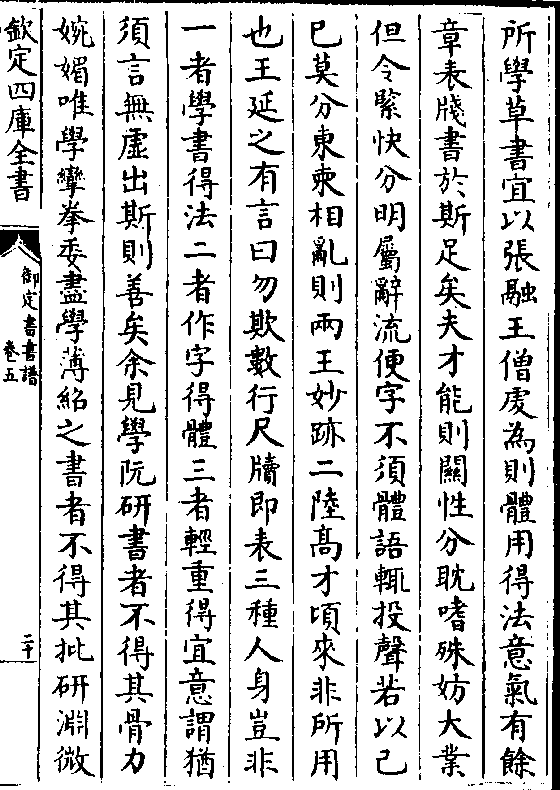 所學草書宜以張融王僧虔為則體用得法意氣有餘
章表牋書於斯足矣夫才能則關性分耽嗜殊妨大業
但令緊快分明屬辭流便字不須體語輒投聲若以己
巳莫分東柬相亂則兩王妙跡二陸髙才頃來非所用
也王延之有言曰勿欺數行尺牘即表三種人身豈非
一者學書得法二者作字得體三者輕重得宜意謂猶
須言無虛出斯則善矣余見學阮研書者不得其骨力
婉媚唯學攣拳委盡學薄紹之書者不得其批研淵微
欽定四庫全書
御定書畫譜
卷五
二十